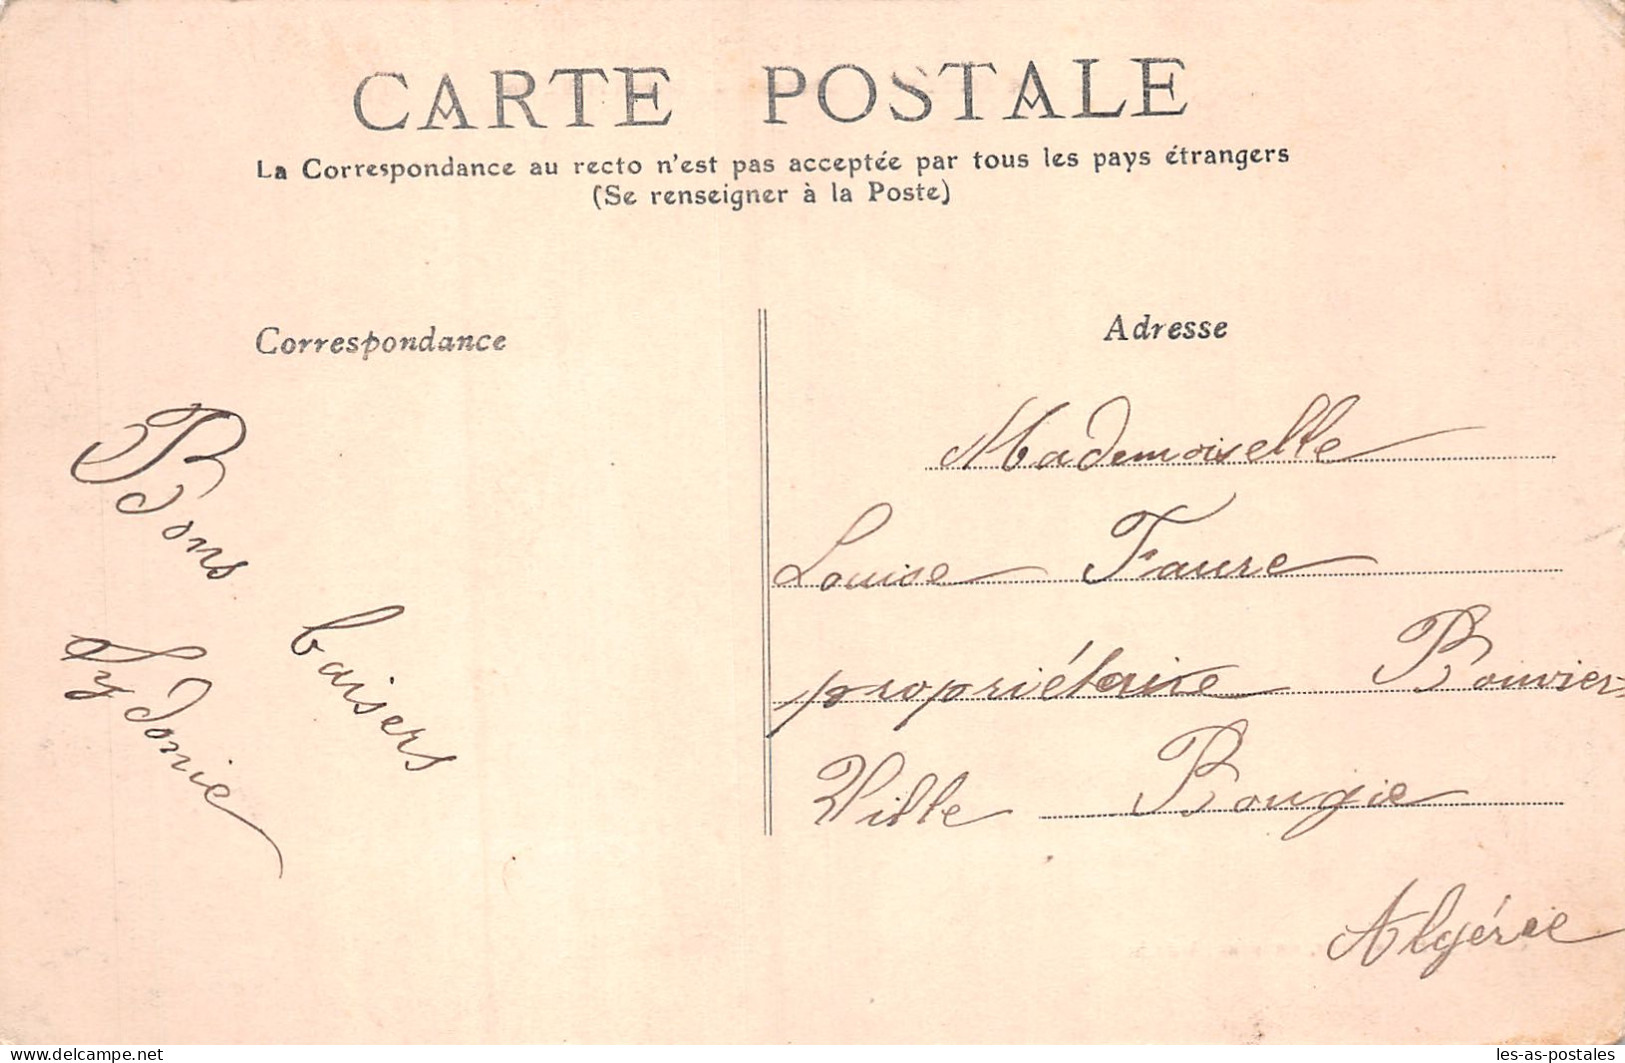 CARTE POSTALE
La Correspondance au recto n'est pas acceptée par tous les pays étrangers
(Se renseigner à la Poste)
Correspondance
Bons
baisers
Sydonie
Adresse
Mademoiselle
Louise Faure
propriétaire Bouvier
Ville Bougie
Algérie
delcampe.net
les-as-postales